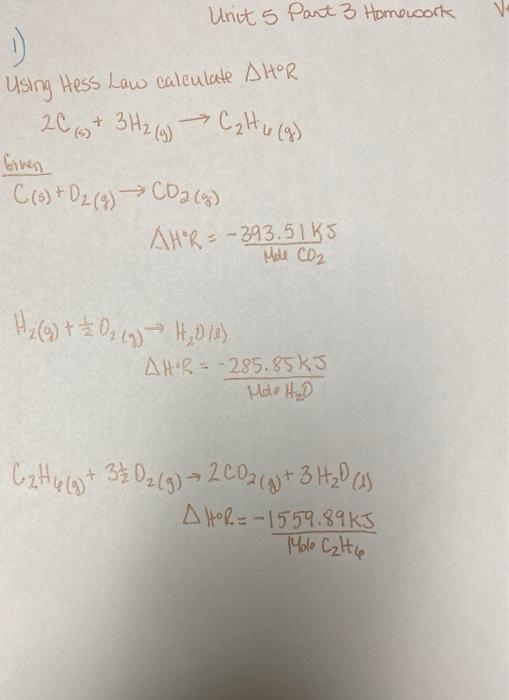 Unit 5 Part 3 Homework
1)
Using Hess Law calculate ΔH°R
2C(s) + 3H2(g) → C2H6(g)
Given
C(s) + O2(g) → CO2(g)
ΔH°R = -393.51 KJ
Mole CO2
H2(g) + ½ O2(g) → H2O(l)
ΔH°R = -285.85 KJ
Mole H2O
C2H6(g) + 3½ O2(g) → 2CO2(g) + 3H2O(l)
ΔH°R = -1559.89 KJ
Mole C2H6